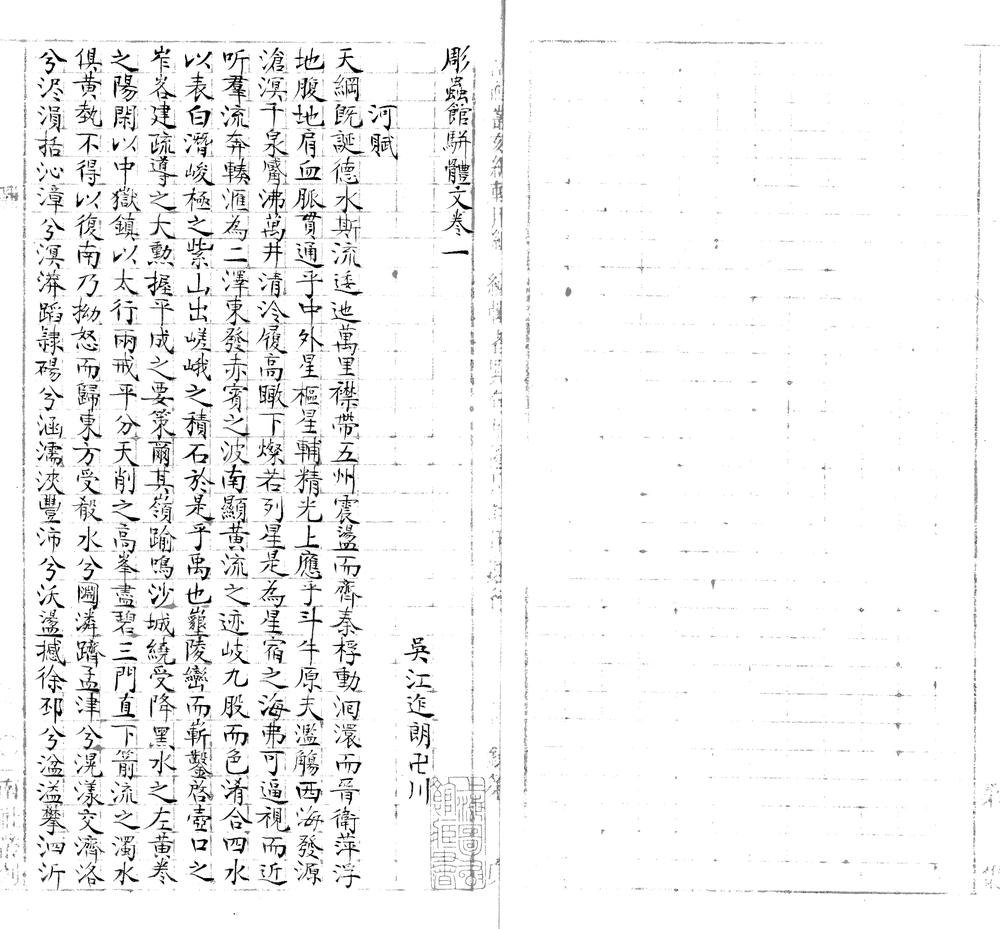 彫蟲館駢體文卷一
吳江迮朗卍川
河賦
天綱旣誕德水斯流逶迆萬里襟帶五州震盪而齊秦桴動洄澴而晉衛萍浮
地腹地肩血脈貫通乎中外星樞星輔精光上應乎斗牛原夫濫觴西海發源
滄溟千泉觱沸萬井清泠履高瞰下燦若列星是為星宿之海弗可逼視而近
听羣流奔輳滙為二澤東發赤賓之波南顯黃流之迹岐九股而色淆合四水
以表白潛峻極之紫山出嵯峨之積石於是乎禹也巃陵巒而嶄鑿啓壺口之
岝峉建疏導之大勲握平成之要策爾其嶺踰鳴沙城繞受降黑水之左黃卷
之陽閑以中嶽鎮以太行兩戒平分天削之高峯盡碧三門直下箭流之濁水
俱黃埶不得以復南乃拗怒而歸東方受殽水兮潾躋孟津兮滉漾交濟洛
兮浕溳括沁漳兮溟漭蹈隷碭兮涵濡浹豐沛兮沃盪撼徐邳兮湓溢擎泗沂